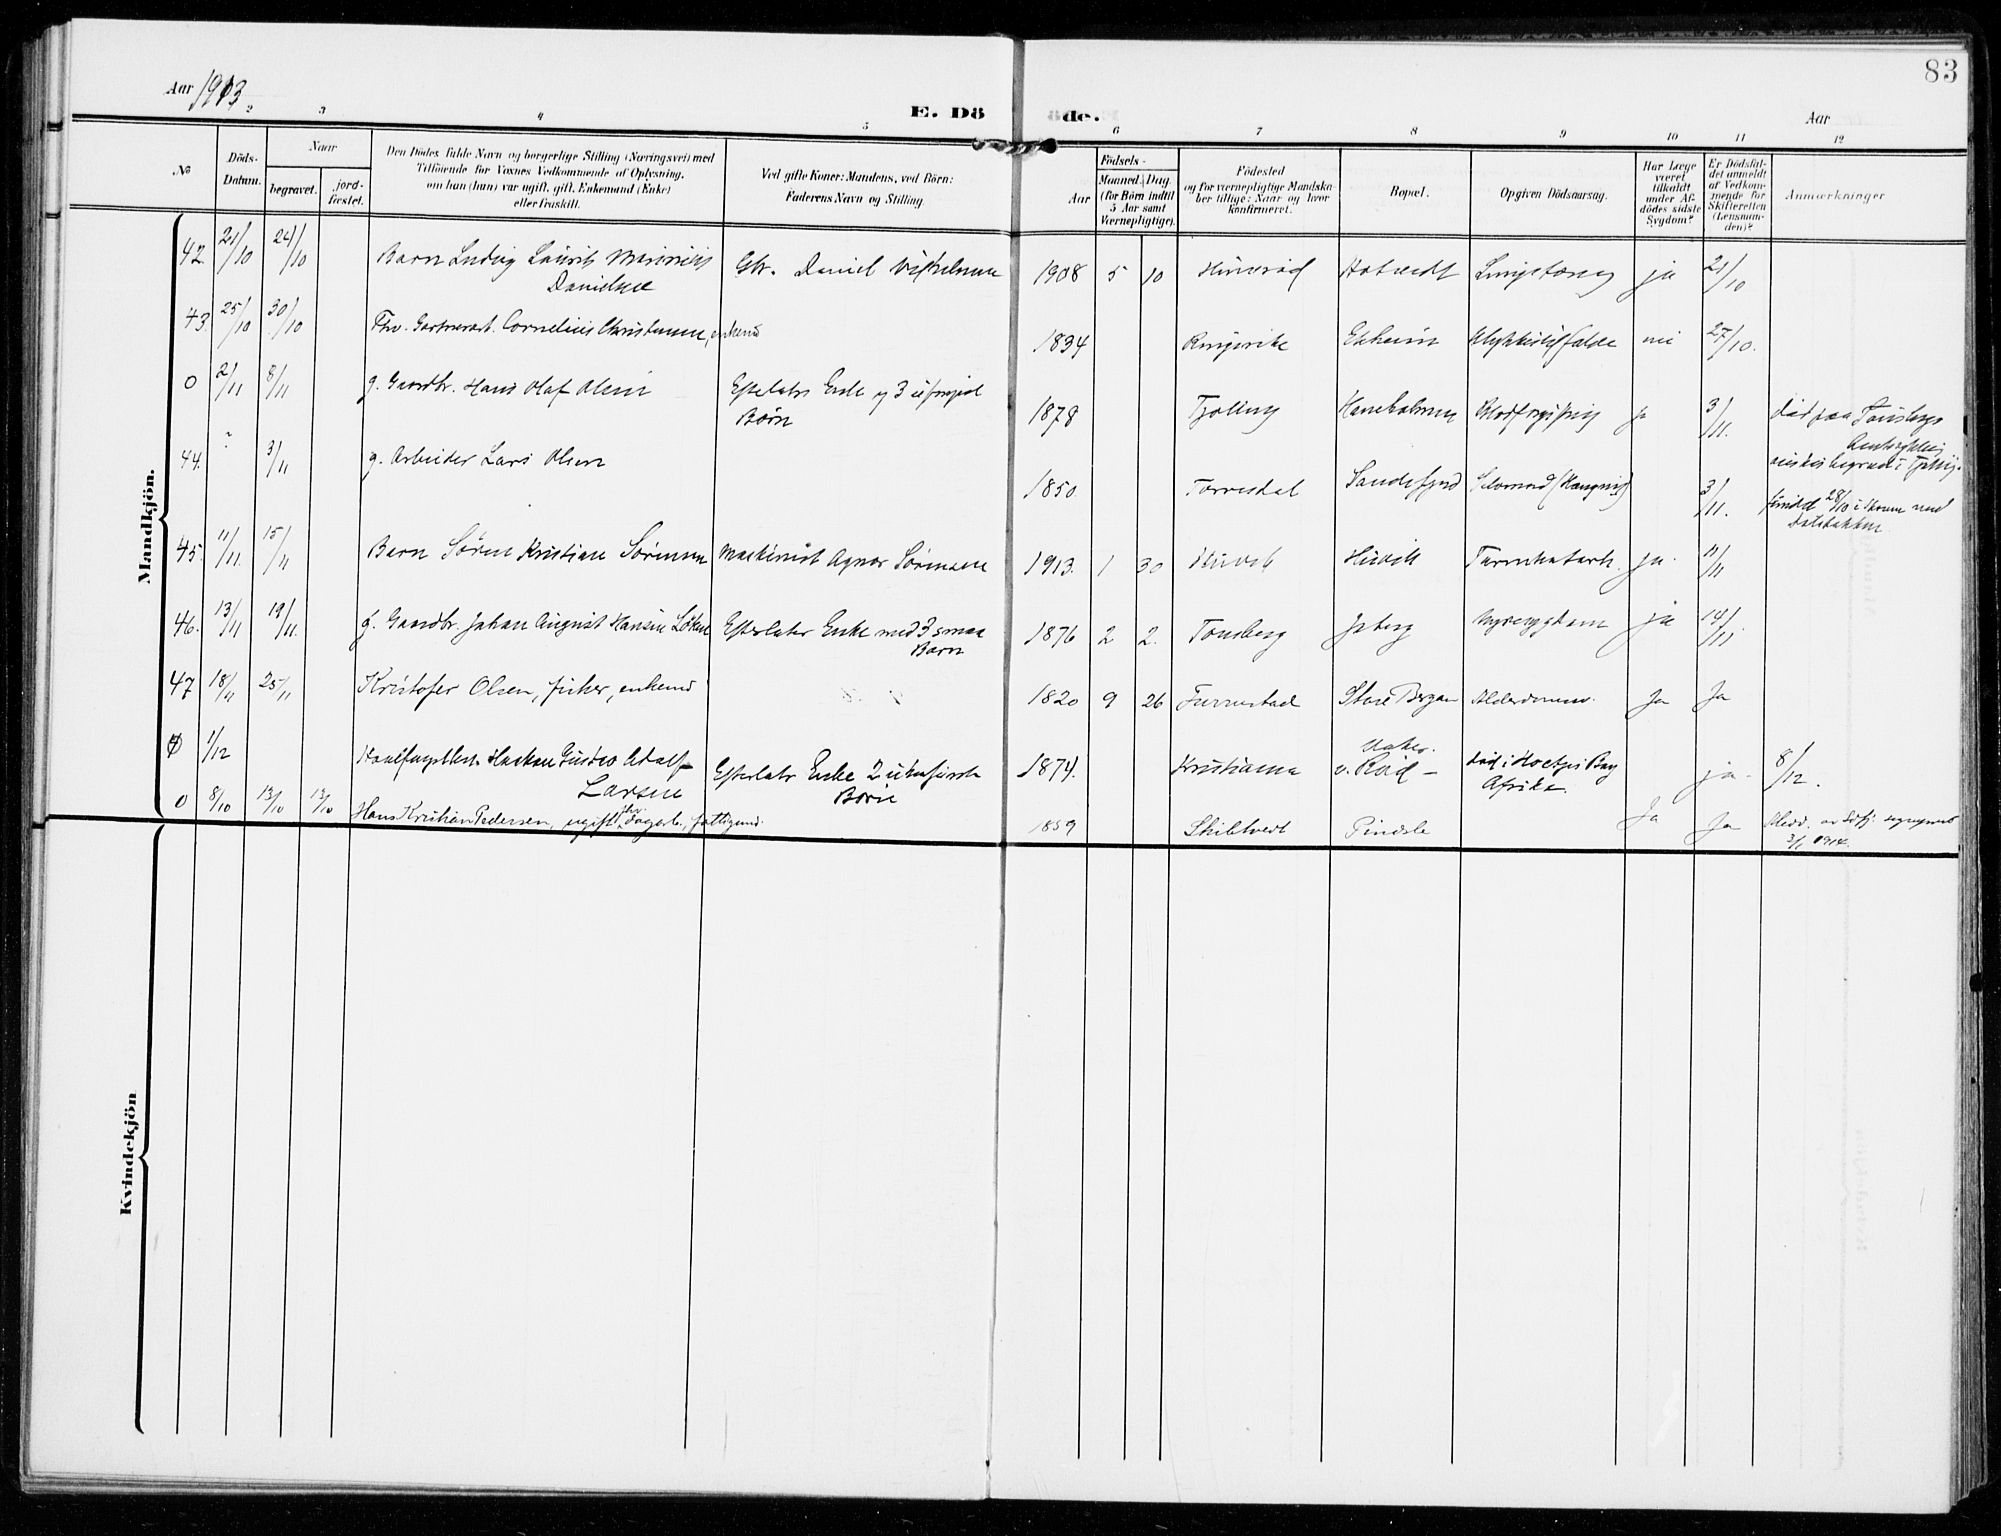 83
Aar 1913
E. Dö
de.
Aar
2 3 4 5 6 7 8 9 10 11 12
№
Döds-
Datum.
Naar
begravet.
jord-
fæstet.
Den Dödes fulde Navn og borgerlige Stilling (Næringsvei) med
Tilföiende for Voxnes Vedkommende af Oplysning,
om han (hun) var ugift, gift, Enkemand (Enke)
eller fraskilt.
Ved gifte Koner: Mandens, ved Börn:
Faderens Navn og Stilling.
Aar
Födsels-
Maaned. Dag.
(for Börn indtil
5 Aar samt
Værnepligtige).
Födested
og for værnepligtige Mandska-
ber tillige: Naar og hvor
konfirmeret.
Bopæl.
Opgiven Dödsaarsag.
Har Læge
været
tilkaldt
under Af-
dödes sidste
Sygdom?
Er Dödsfal-
det anmeldt
af Vedkom-
mende for
Skifteretten
(Lensman-
den)?
Anmærkninger
Mandkjön.
42. 21/10 24/10 Barn Ludvig Laurits Marinius
Danielsen
Gbr. Daniel
1908 5 10 Hotvedt ja 21/10
43. 25/10 30/10 Fhv. Cornelius Christensen, enkemd
1834 Ringerike Ekheim nei 27/10.
0 2/11 8/11 g. Gaardbr. Hans Olaf Olsen Efterlater Enke og 3 uforsørget
Børn
1878 Tjølling Haneholmen Blodforgiftning ja 3/11. død paa Tønsbergs
44. ? 3/11 g. Arbeider Lars Olsen
1850. Torresdal Sandefjord Selvmord (Hængning) 3/11. fundet 28/10 i Skoven ved
45. 11/11. 15/11 Barn Søren Kristian Sørensen Maskinist Agnar Sørensen
1913. 1 30 Husvik Tarmkatarh. ja. 11/11
46. 13/11 19/11. g. Gaardbr. Johan August Hansen Løken Efterlater Enke med 3 smaa
Barn
1876 2 2. Tønsberg Jaberg Nyresygdom ja 14/11.
47 18/11 25/11 Kristofer Olsen, fisker, enkemd
1820 9 26 Furustad Store Bergan Alderdomssv. Ja Ja
0 1/12 Haakon Gustav Adolf
Larsen
Efterlater Enke 2 ukonfirmerte
Børn
1874. Kristiania v. Raid – død i Bay
Afrika. ja – 8/12.
0 8/10 13/10 13/10 Hans Kristian Pedersen, ugift, fhv. dagarb., fattigund.
1859 Skiltvedt Pindsle Ja Ja Medd. av
3/1 1914.
Kvindekjön